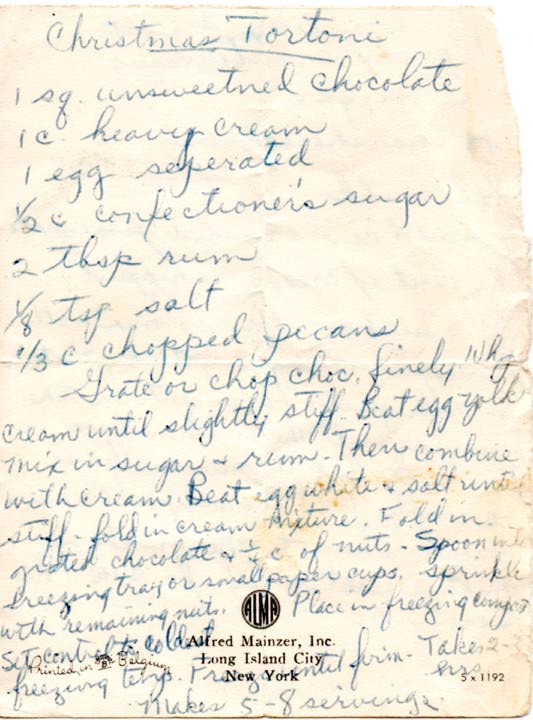 Christmas Tortoni
1 sq. unsweetned chocolate
1 c. heavy cream
1 egg seperated
1/2 c confectioner's sugar
2 tbsp rum
1/8 tsp salt
1/3 c chopped pecans
Grate or chop choc. finely Whip
cream until slightly stiff. Beat egg yolk
mix in sugar & rum. Then combine
with cream. Beat egg white & salt until
stiff - fold in cream mixture. Fold in
grated chocolate & 1/4 c of nuts. Spoon into
freezing tray or small paper cups. sprinkle
with remaining nuts. Place in freezing
Set controls to coldest
freezing temp. Freeze until firm. Takes 2-
hrs
Makes 5-8 servings.
ALMA
Alfred Mainzer, Inc.
Long Island City
New York
Printed in Belgium
5 x 1192